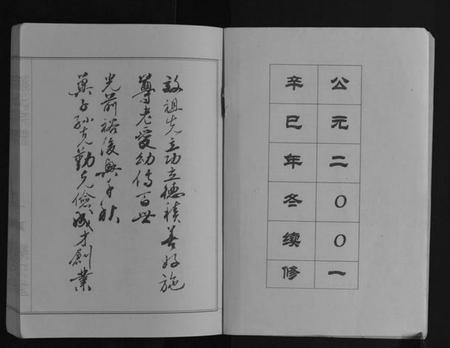 公元二〇〇一
辛巳年冬续修
祖先立功立德積善好施
尊老愛幼傳百世
光前裕後興千秋
冀子孫克勤克儉成才創業